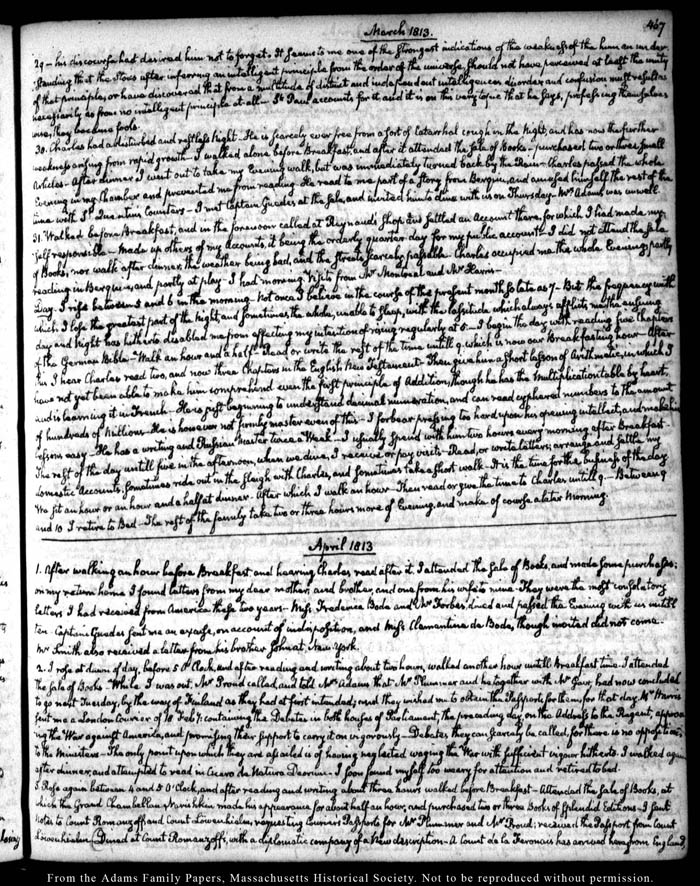 March 1813.
467
29 — his discourse had desired him not to forget. It seems to me one of the strongest indications of the weakness of the human under-
standing that the Stoics after inferring an intelligent principle from the order of the universe should not have perceived at least the unity
of that principle, or have discovered that from a multitude of distinct and independent intelligences disorder and confusion must result as
necessarily as from no intelligent principle at all — St. Paul accounts for it and it is on this very topic that he says, professing themselves
wise, they became fools.
30. Charles had a disturbed and restless Night. He is scarcely ever free from a sort of Catarrhal cough in the Night, and has now the further
weakness arising from rapid growth — I walked alone before Breakfast, and after it attended the Sale of Books — purchased two or three small
Articles — After dinner I went out to take my Evening walk, but was immediately turned back by the Rain — Charles passed the whole
Evening in my Chamber and prevented me from reading. He read to me part of a Story from Berquin, and amused himself the rest of the
time with St. Quentin Counters — I met Captain Guedes at the Sale, and invited him to dine with us on Thursday. Mrs Adams was unwell
31. Walked before Breakfast, and in the forenoon called at Raynaud's Shop and settled an Account there, for which I had made my-
self responsible — Made up others of my accounts, it being the orderly quarter day for my public accounts — I did not attend the Sale
of Books, nor walk after dinner, the weather being bad, and the streets scarcely passable. Charles occupied me the whole Evening, partly
reading in Berquin, and partly at play — I had morning Visits from Mr Montreal and Mr Harris —
Day. I rise between 5 and 6 in the morning. Not once I believe in the course of the present month so late as 7 — But the frequency with
which I lose the greatest part of the Night, and sometimes the whole, unable to sleep, with the lassitude which always afflicts me the ensuing
day and Night has hitherto disabled me from effecting my intention of rising regularly at 5 — I begin the day with reading five Chapters
of the German Bible — Walk an hour and a half — Read or write the rest of the time until 9. which is now our Breakfasting hour — After
it I hear Charles read two, and now three Chapters in the English New Testament — Then give him a short lesson of Arithmetic, in which I
have not yet been able to make him comprehend even the first principle of Addition, though he has the Multiplication table by heart,
and is learning it in French. He is just beginning to understand decimal numeration, and can read cyphered numbers to the amount
of hundreds of Millions. He is however not firmly master even of this — I forbear pressing too hard upon his opening intellect, and make his
lessons easy — He has a writing and Russian Master twice a Week — I usually spend with him two hours every morning after Breakfast —
The rest of the day until five in the afternoon, when we dine, I receive or pay visits — Read, or write letters; arrange and settle my
domestic Accounts, sometimes ride out in the Sleigh with Charles, and sometimes take a short walk. It is the time for the business of the day
We sit an hour or an hour and a half at dinner. After which I walk an hour — Then read or give the time to Charles until 9 — Between 9
and 10 I retire to Bed — The rest of the family take two or three hours more of Evening, and make of course a later Morning.
April 1813
1. After walking an hour before Breakfast and hearing Charles read after it, I attended the Sale of Books, and made some purchases;
on my return home I found letters from my dear mother, and brother, and one from his wife to mine. They were the most consolatory
letters I had received from America these two years — Miss Frederica Bode and Mr Forbes, dined and passed the Evening with us until
ten. Captain Guedes sent me an excuse, on account of indisposition, and Miss Clementina de Bode, though invited did not come.
Mr Smith also received a letter from his brother John at New-York.
2. I rose at dawn of day, before 5 O'Clock, and after reading and writing about two hours, walked another hour until Breakfast time. I attended
the Sale of Books — While I was out, Mr Proud called, and told Mrs Adams that Mr Plummer and he together with Mr Gay, had now concluded
to go next Tuesday, by the way of Finland as they had at first intended; and they wished me to obtain the Passports for them for that day. Mr Harris
sent me a London Courier of 18 Feby. containing the Debates in both houses of Parliament, the preceding day, on the Address to the Regent, approv-
ing the War against America, and promising their support to carry it on vigorously — Debates they can scarcely be called, for there is no opposition
to the Ministers. The only point upon which they are assailed is of having neglected waging the War with sufficient vigour hitherto. I walked again
after dinner, and attempted to read in Cicero de Natura Deorum. I soon found myself too weary for attention and retired to bed.
3. Rose again between 4 and 5 O'Clock, and after reading and writing about three hours walked before Breakfast — Attended the Sale of Books, at
which the Grand Chambellan Narishkin made his appearance for about half an hour, and purchased two or three Books of splendid Editions — I sent
Notes to Count Romanzoff and Count Löwenhielm, requesting Couriers Passports for Mr Plummer and Mr Proud; received the Passport from Count
Löwenhielm — Dined at Count Romanzoff's, with a diplomatic company of a New description — A Count de la Ferronais has arrived here from England,
From the Adams Family Papers, Massachusetts Historical Society. Not to be reproduced without permission.